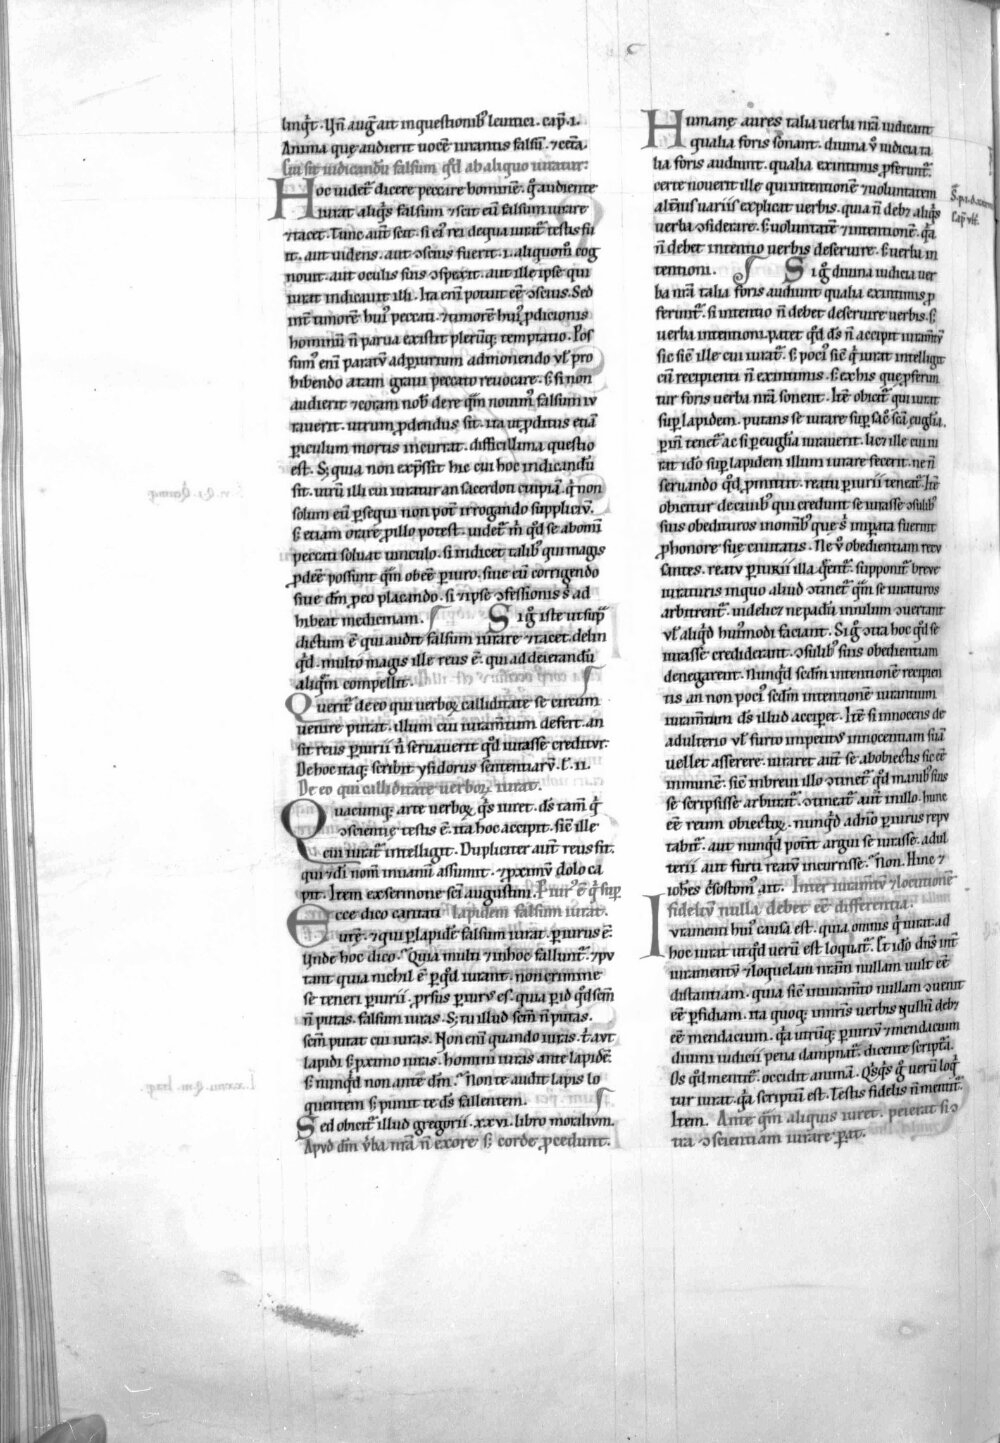 linq̄t. Un̄ auḡ ait in questionibꝰ leuitici. cap̄. i.
Anima quę audierit uocē iurantis falsū. ⁊ cetā.
Cui sit iudicandū falsum qd̄ ab aliquo iuratur.
Hoc uidet̄ dicere peccare hominē. q̄ audiente
iurat aliq̄s falsum ⁊ scit eū falsum iurare
⁊ tacet. Tunc aut̄ scit. si eiꝰ rei de qua iurat̄ testis fu
it. aut uidens. aut ɔscius fuerit. i. aliquom̊ cog
nouit. aut oculis suis ɔspexit. aut ille ipse qui
iurat indicauit illi. Ita eni᷃ potuit eē ɔscius. Sed
int̄ timorē huiꝰ peccati. ⁊ timorē huiꝰ ꝓdicionis
hominū n̄ parua existit plerūq; temptatio. Pos
sumꝰ eni᷃ paratū ad ꝑiurium admonendo ul̄ pro
hibendo a tam graui peccato reuocare. s; si non
audierit ⁊ coram nobꝰ de re quā nouimꝰ falsum iu
rauerit. utrum ꝓdendus sit. ita ut ꝓditus etiā
ꝑiculum mortis incurrat. difficillima questio
est. S; quia non exp̄ssit hic cui hoc indicandū
sit. utrū illi cui iuratur an sacerdoti cuipiā. q̄ non
solum eū ꝑsequi non pot̄ irrogando suppliciū.
s; etiam orare ꝓ illo potest. uidet̄ m̄ qd̄ se absoluat
peccati soluat uinculo. si indicet talibꝰ qui magis
ꝓdeē possunt quā obeē ꝑiuro. siue eū corrigendo
siue dm̄ ꝓ eo placando. si ⁊ ipse ɔfessionis s; ad
hibeat medicinam. Sig̊ iste ut sup̄
dictum ē qui audit falsum iurare ⁊ tacet. delin
qd̄. multo magis ille reus ē. qui ad deierandū
aliquē compellit.
Querit̄ de eo qui uerboꝝ calliditate se circum
uenire putat. illum cui iuram̄tum desert. an
sit reus ꝑiurii n̄ seruauerit qd̄ iurasse creditur.
De hoc itaq; scribit ysidorus sententiarū. l. ii.
De eo qui calliditate uerboꝝ iurat.
Quacumq; arte uerboꝝ q̄s iuret. ds̄ tam̄ q̄
ɔscientię testis ē. ita hoc accipit. sic̄ ille
cui iurat̄ intelligit. Dupliciter aut̄ reus fit.
qui ⁊ di᷃ nom̄ in uanū assumit. ⁊ ꝓximū dolo ca
pit. Item ex sermone sc̄i augustini. Ꝑiurꝰ ē q̄ sup̄
Ecce dico caritati lapidem falsum iurat.
urē. ⁊ qui ꝑ lapidē falsum iurat. ꝑiurus ē.
Unde hoc dico. Quia multi ⁊ in hoc fallunt̄. ⁊ pu
tant quia nichil ē ꝑ qd̄ iurant. non crimine
se teneri ꝑiurii. ꝓrsus ꝑiurus es. quia ꝑ id qd̄ scm̄
n̄ putas. falsum iuras. S; tu illud scm̄ n̄ putas.
scm̄ putat cui iuras. Non eni᷃ quando iuras. t̄ aut
lapidi s; ꝓximo iuras. homini iuras ante lapidē.
s; nunqd̄ non ante dm̄. Non te audit lapis lo
quentem s; punit te ds̄ fallentem.
Sed obicit̄ illud gregorii. xxvi. libro moraliū.
Apud dm̄ ūba nr̄a n̄ ex ore s; corde ꝓcedunt.
Humanę aures talia uerba nr̄a iudicant
qualia foris sonant. diuina ū iudicia ta
lia foris audiunt. qualia ex intimis ꝓferunt̄.
certe nouerit ille qui intentionē ⁊ uoluntatem
alteriꝰ uariis explicat uerbis. quia n̄ deb; aliq̄s
uerba ɔsiderare. s; uoluntatē ⁊ intentionē. qa᷃
n̄ debet intentio uerbis deseruire. s; uerba in
tentioni. Sig̊ diuina iudicia uer
ba nr̄a talia foris audiunt qualia ex intimis ꝓ
ferunt̄. si intentio n̄ debet deseruire uerbis. s;
uerba intentioni. patet qd̄ ds̄ n̄ accipit iuram̄tū
sic sic̄ ille cui iurat̄. s; pociꝰ sic̄ q̄ iurat intelligit
cū recipienti n̄ ex intimis. s; ex his quę ꝓferun
tur foris uerba nr̄a sonent. Itē obicit̄ qui iurat
sup̄ lapidem. putans se iurare sup̄ sac̄ sc̄a euḡlia.
ꝑ in᷃ tenet̄ ac si ꝑ euḡlia iurauerit. lic; ille cui iu
rat ido᷃ sup̄ lapidem illum iurare fecerit. ne n̄
seruando qd̄ ꝓmittit. reatu ꝑiurii teneat̄. Itē
obicitur de ciuibꝰ qui credunt se iurasse ɔsulibꝰ
suis obedituros in om̄ibꝰ que s᷃ impata fuerint
ꝓ honore suę ciuitatis. Ne ū obedientiam recu
santes. reatu ꝑiurii illa q̄ent̄. supponit̄ breue
iuraturis in quo aliud ɔtinet̄ qm̄ se iuraturos
arbitrent̄. uidelic; ne padū in ulnum ɔuertant
ul̄ aliqd̄ huiꝰmodi faciant. Sig̊ ɔtra hoc qd̄ se
iurasse crediderant. ɔsulibꝰ suis obedientiam
denegarent. Nunqd̄ scdm̄ intentionē recipien
tis an non pociꝰ scdm̄ intentionē iurantium
iuram̄tum ds̄ illud accipet. Itē si innocens de
adulterio ul̄ furto impetitus innocentiam suā
uellet asserere. iuraret aut̄ se ab obiectis sic eē
immunē. sic̄ in breui illo ɔtinet̄. qd̄ manibꝰ suis
se scripsisse arbitrat̄. ɔtineat̄ aut̄ in illo. hunc
eē reum obiectoꝝ. nunqd̄ a dn̄o ꝑiurus repu
tabit̄. aut nunqd̄ potit argui se iurasse. adul
terii aut furti reatū incurrisse. Non. Hinc ⁊
ioh̄es cͥsostomꝰ ait. Inter iuram̄tū ⁊ locutionē
fidelium nulla debet eē differentia.
Iuramenti huiꝰ causa est. quia omnis q̄ iurat. ad
hoc iurat ut qd̄ uerū est loquat̄. Et ido᷃ dn̄s int̄
iuramentū ⁊ loquelam nr̄am nullam uult eē
distantiam. quia sic̄ in iuram̄to nullam ɔuenit
eē ꝑfidiam. ita quoq; in nr̄is uerbis nullū deb;
eē mendacium. qa᷃ utrūq; ꝑiuriū ⁊ mendacium
diuini iudicii pena dampnat̄. dicente scriptā.
Os qd̄ mentit̄. occidit animā. Qs̄q̄s g̊ uerū loq̄
tur iurat. qa᷃ scriptū est. Testis fidelis n̄ mentit̄.
Item. Ante qm̄ aliquis iuret. peierat si ɔ
tra ɔscientiam iurare ꝑat.